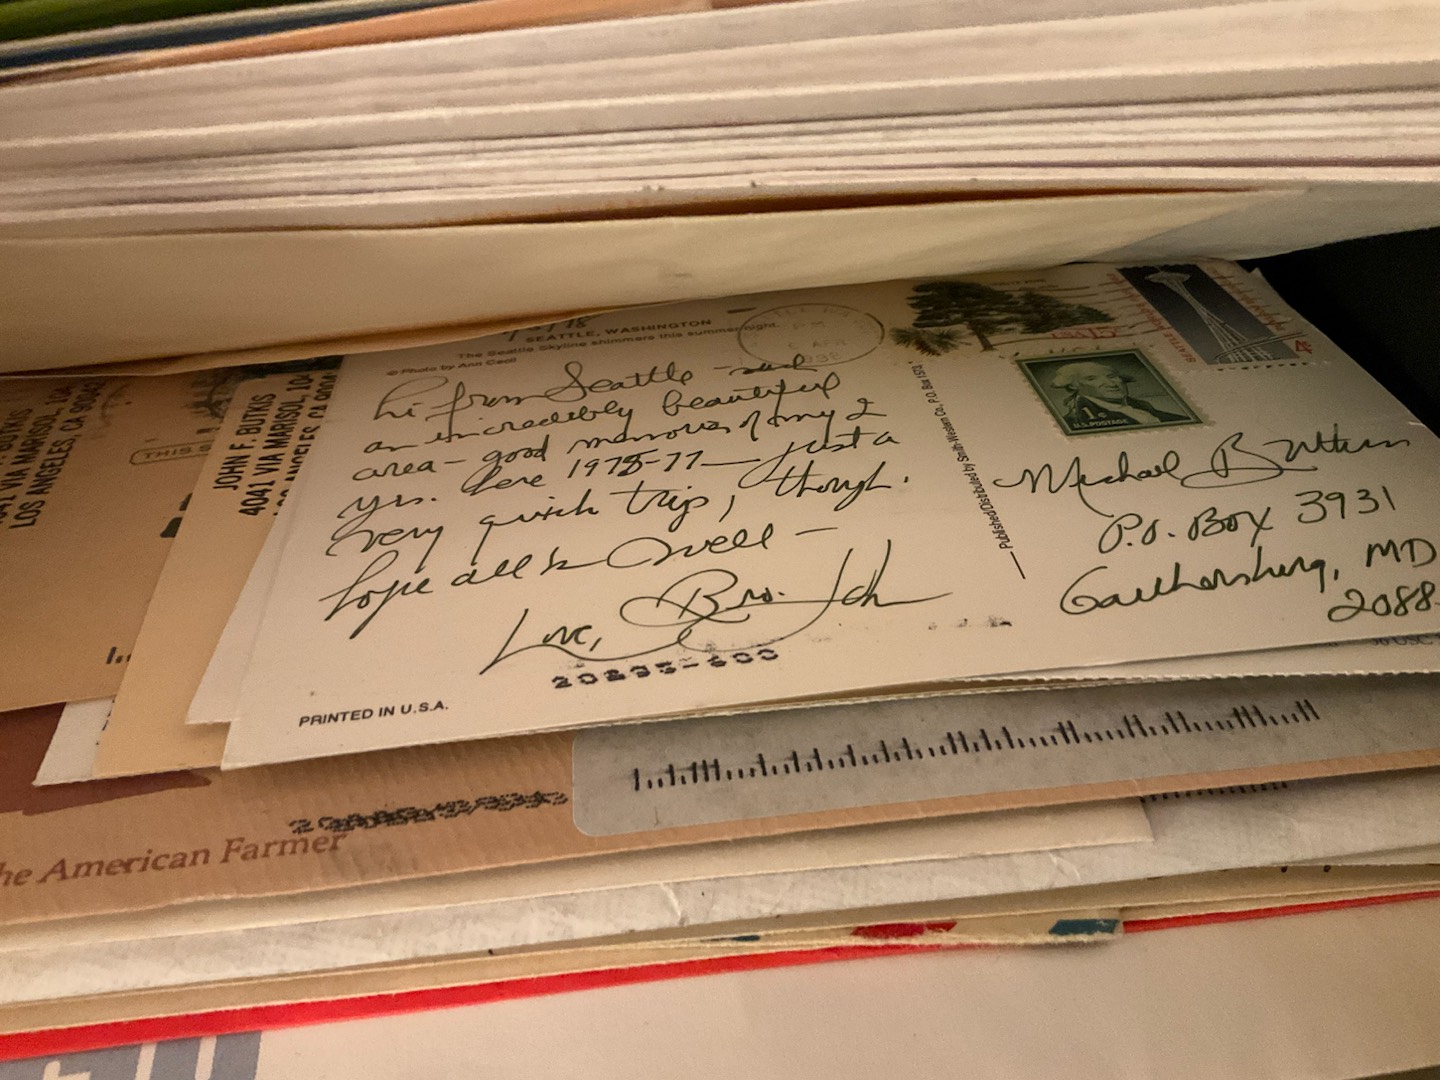 SEATTLE, WASHINGTON
The Seattle Skyline shimmers this summer night.
© Photo by Ann Cecil
hi from Seattle – such
an incredibly beautiful
area – good memories of my 2
yrs. here 1975-77 — just a
very quick trip, though.
hope all is well –
Love, Bro. John
20895-800
PRINTED IN U.S.A.
Published/Distributed by Smith-Western Co., P.O. Box
USA 15
SEATTLE
4¢
1¢
U.S. POSTAGE
Michael
P.O. Box 3931
Gaithersburg, MD
2088
THIS S
BUTKIS
4041 VIA MARISOL, 10
LOS ANGELES, CA 90042
JOHN F. BUTKIS
4041 VIA MARISOL, 104
LOS ANGELES CA
he American Farmer